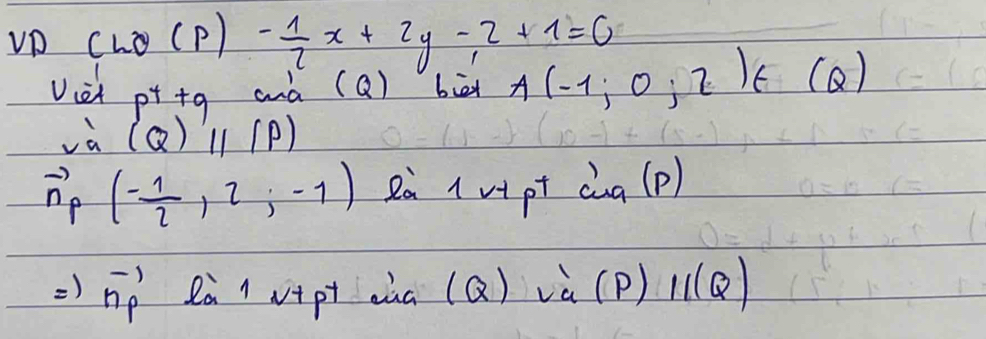 VD Cho (P) -1/2 x + 2y - z + 1 = 0
Viết pt tq của (Q) biết A(-1; 0; 2) ∈ (Q)
và (Q) // (P)
n⃗p (-1/2, 2; -1) là 1 vtpt của (P)
=) n⃗p là 1 vtpt của (Q) và (P) //(Q)